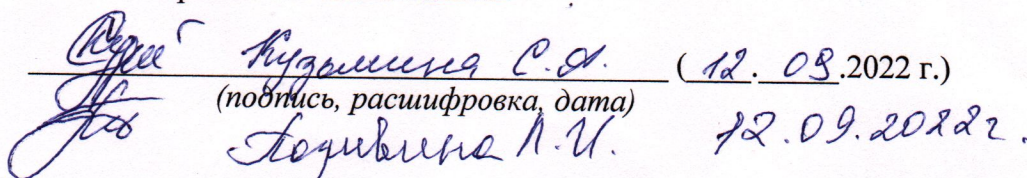 Кузьмина С.А. (12.09.2022 г.)
(подпись, расшифровка, дата)
Л.И. 12.09.2022г.